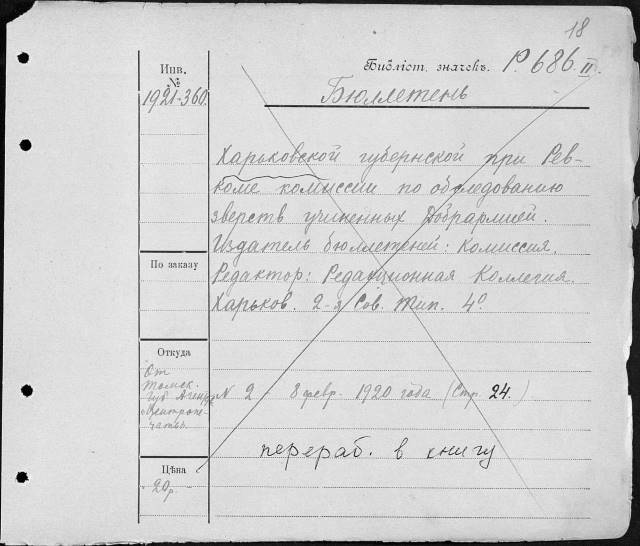 18
Инв.
№
1921-360.
Библіот. значекъ. Р. 686. II.
Бюллетень
Харьковской губернской при Рев-
коме комиссии по обследованию
зверств учиненных Добрармией.
Издатель бюллетеней: Комиссия.
По заказу
Редактор: Редакционная Коллегия.
Харьков. 2-я Сов. Тип. 4°.
Откуда
От
Томск.
губ. Агент.
Центропе-
чати
N 2 - 8 февр. 1920 года (Стр. 24.)
перераб. в книгу
Цѣна
20р.